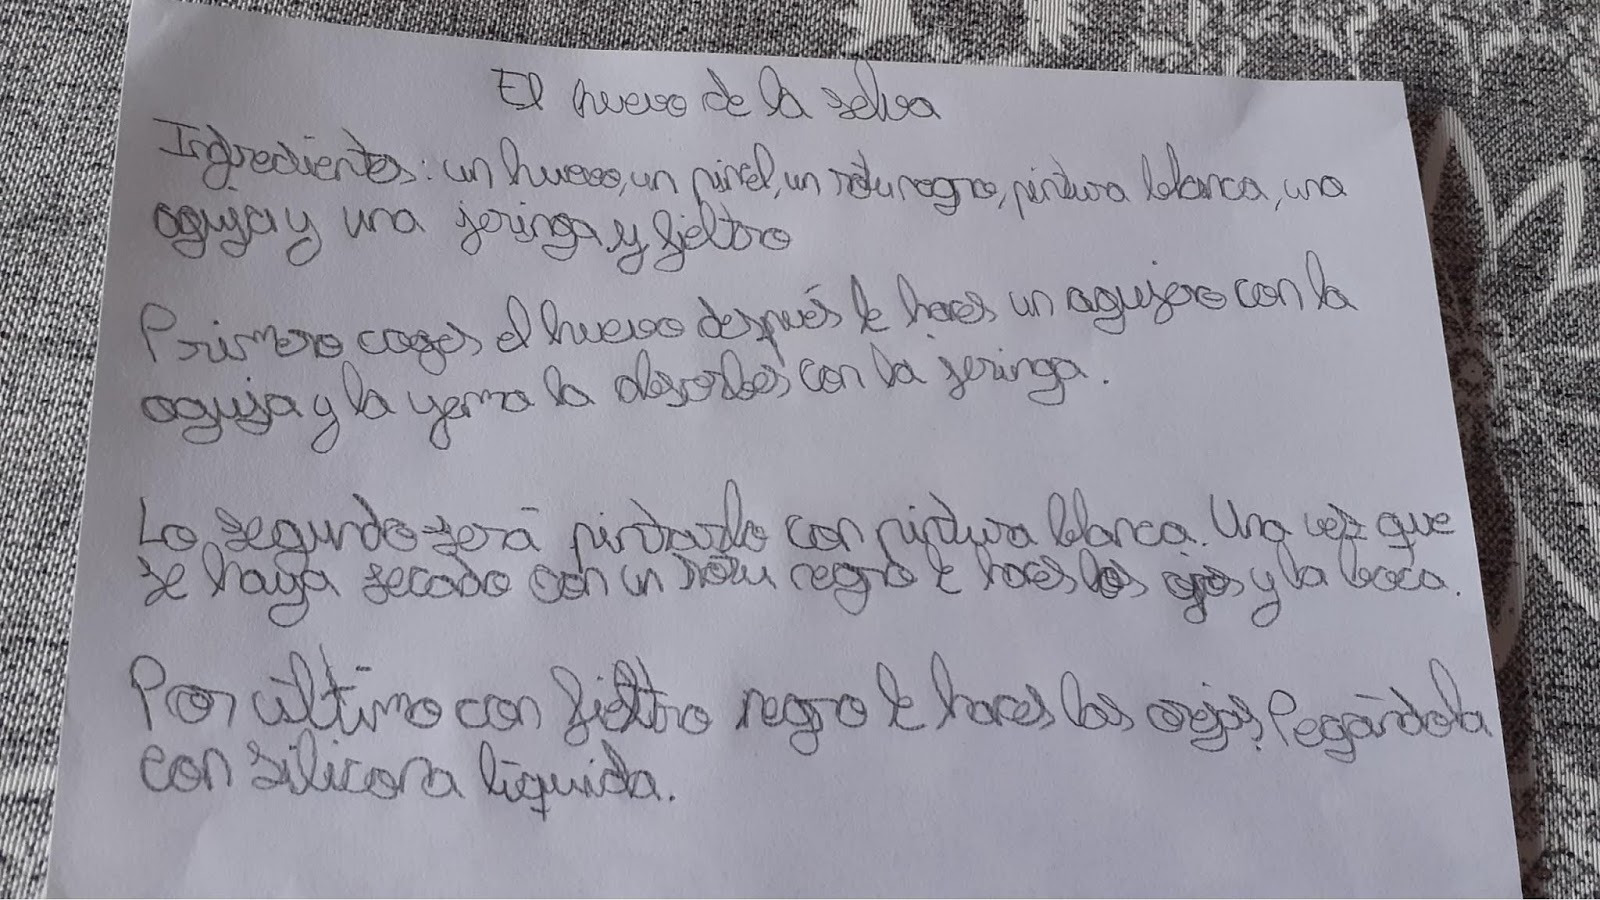 El huevo de la selva
Ingredientes: un huevo, un pinel, un rotu negro, pintura blanca, una
aguja y una jeringa y fieltro
Primero coges el huevo después le haces un agujero con la
aguja y la yema la absorbes con la jeringa.
Lo segundo será pintarlo con pintura blanca. Una vez que
se haya secado con un rotu negro le haces los ojos y la boca.
Por último con fieltro negro le haces las orejas. Pegándola
con silicona líquida.